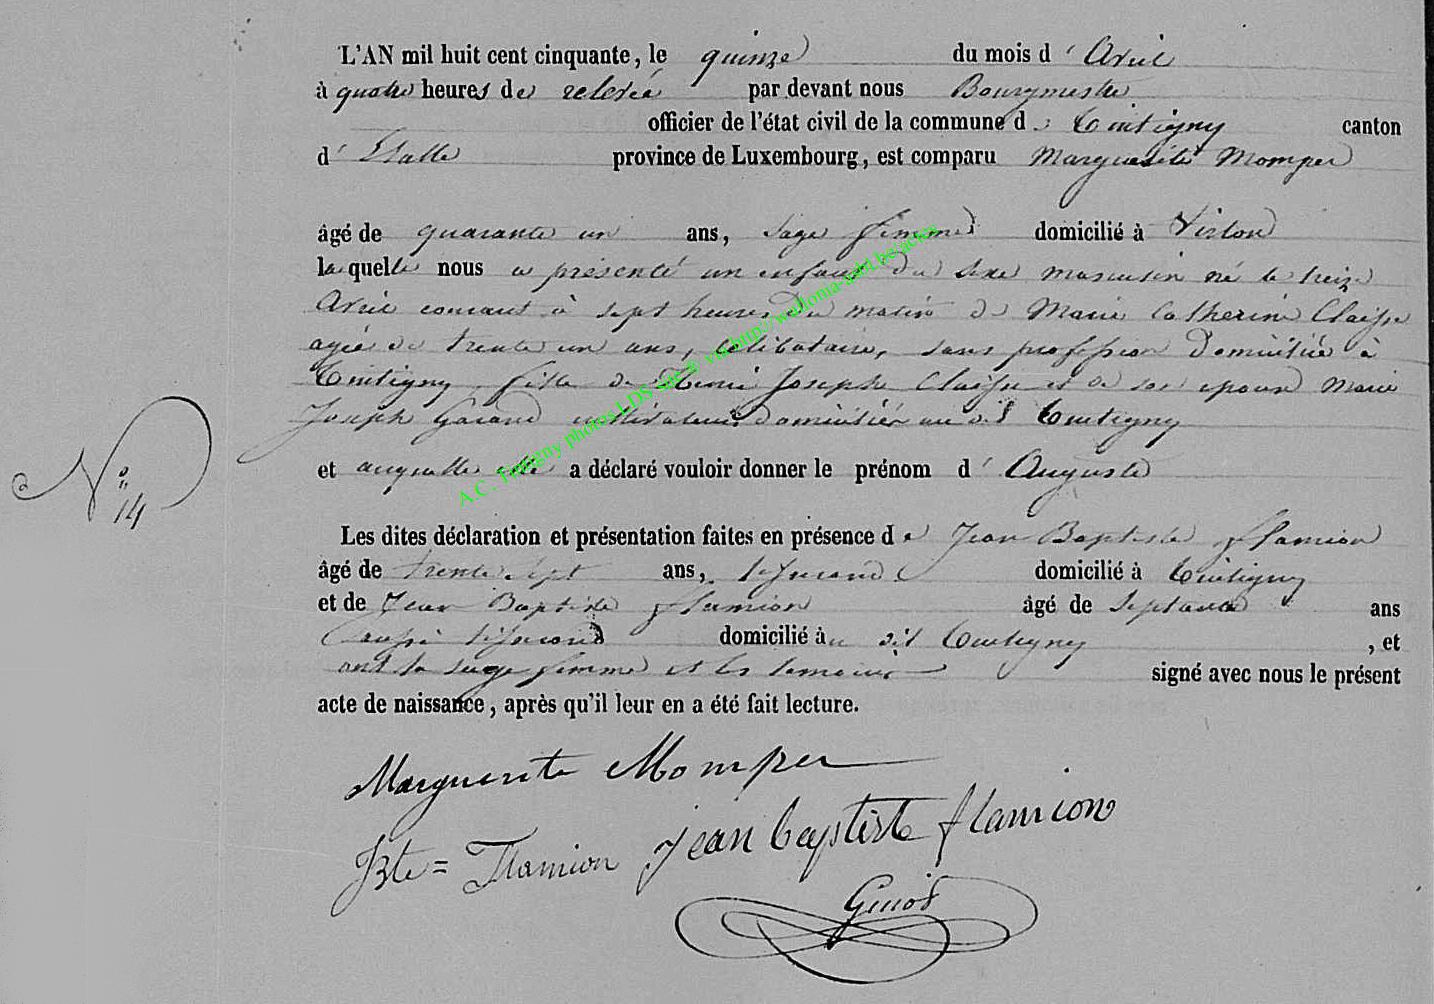 L'AN mil huit cent cinquante, le quinze du mois d' Avril
à quatre heures de relevée par devant nous Bourgmestre
officier de l'état civil de la commune de Tintigny canton
d' Etalle province de Luxembourg, est comparu Marguerite Momper
âgé de quarante un ans, sage femme domicilié à Virton
laquelle nous a présenté un enfant du sexe masculin né le treize
Avril courant à sept heures du matin de Marie Catherine Claisse
agée de trente un ans, célibataire, sans profession domiciliée à
Tintigny, fille de Henri Joseph Claisse et de son epouse Marie
Joseph Gavand cultivateurs domiciliés au dit Tintigny
et auquelle elle a déclaré vouloir donner le prénom d' Auguste
N° 14
Les dites déclaration et présentation faites en présence de Jean Baptiste flamion
âgé de trente sept ans, domicilié à Tintigny
et de Jean Baptiste flamion âgé de septante ans
aussi domicilié au dit Tintigny , et
ont la sage femme et les temoins signé avec nous le présent
acte de naissance, après qu'il leur en a été fait lecture.
Marguerite Momper
JBte = Flamion Jean baptiste flamion
Guiot
A.C. Tintigny photos LDS site © via http://wallonia-asbl.be/actes